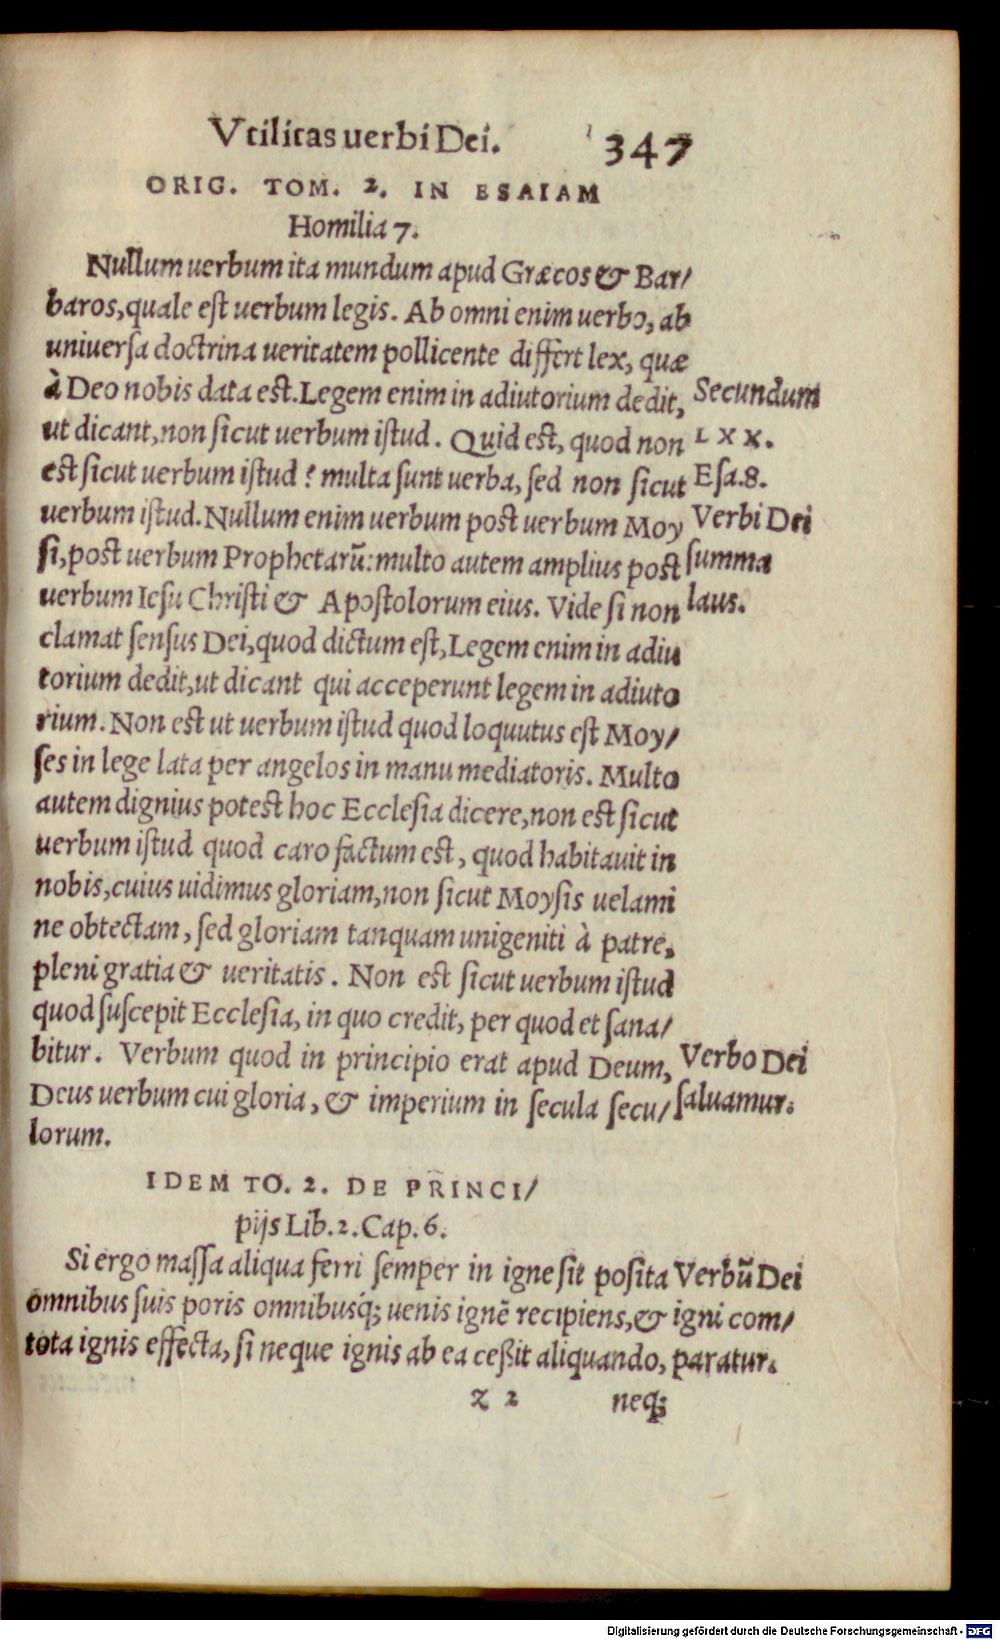 Vtilitas uerbi Dei. 347
ORIG. TOM. 2. IN ESAIAM
Homilia 7.
Nullum uerbum ita mundum apud Græcos & Bar/
baros, quale est uerbum legis. Ab omni enim uerbo, ab
uniuersa doctrina ueritatem pollicente differt lex, quæ
à Deo nobis data est. Legem enim in adiutorium dedit,
ut dicant, non sicut uerbum istud. Quid est, quod non
est sicut uerbum istud? multa sunt uerba, sed non sicut
uerbum istud. Nullum enim uerbum post uerbum Moy
si, post uerbum Prophetarũ: multo autem amplius post
uerbum Iesu Christi & Apostolorum eius. Vide si non
clamat sensus Dei, quod dictum est, Legem enim in adiu
torium dedit, ut dicant qui acceperunt legem in adiuto
rium. Non est ut uerbum istud quod loquutus est Moy/
ses in lege lata per angelos in manu mediatoris. Multo
autem dignius potest hoc Ecclesia dicere, non est sicut
uerbum istud quod caro factum est, quod habitauit in
nobis, cuius uidimus gloriam, non sicut Moysis uelami
ne obtectam, sed gloriam tanquam unigeniti à patre,
pleni gratia & ueritatis. Non est sicut uerbum istud
quod suscepit Ecclesia, in quo credit, per quod et sana/
bitur. Verbum quod in principio erat apud Deum,
Deus uerbum cui gloria, & imperium in secula secu/
lorum.
Secundum
LXX.
Esa.8.
Verbi Dei
summa
laus.
Verbo Dei
saluamur.
IDEM TO. 2. DE PRINCI/
pijs Lib. 2. Cap. 6.
Si ergo massa aliqua ferri semper in igne sit posita
omnibus suis poris omnibusq́; uenis ignẽ recipiens, &
tota ignis effecta, si neque ignis ab ea ceßit aliquando,
Verbũ Dei
igni com/
paratur.
z 2 neq;
Digitalisierung gefördert durch die Deutsche Forschungsgemeinschaft - DFG